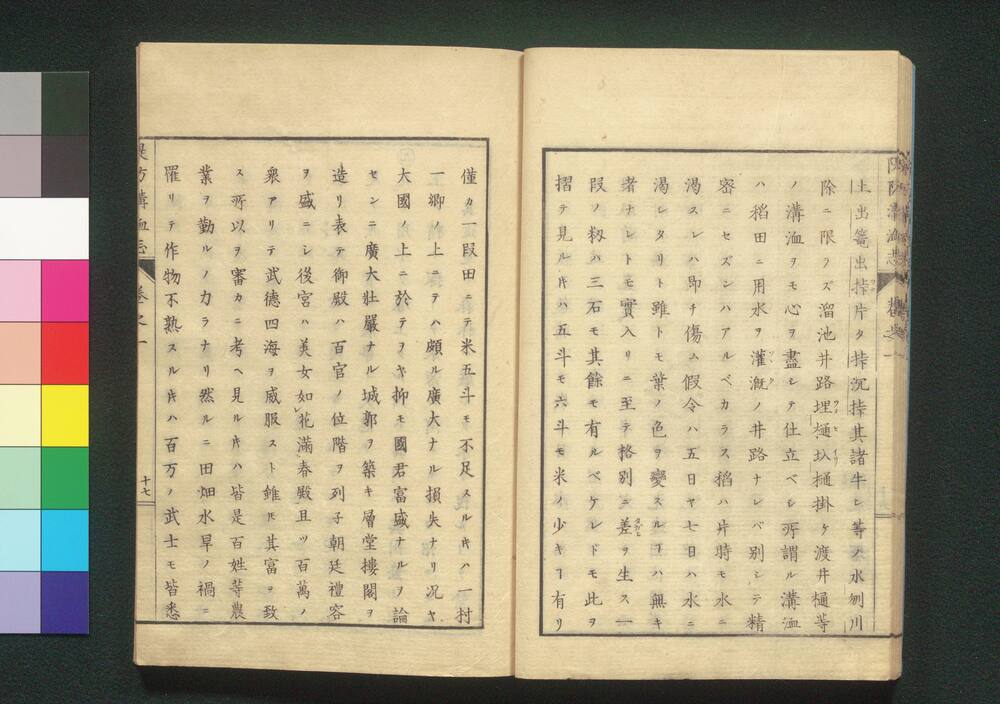 上出篭出㧣片タ㧣沉㧣其諸牛レ等ノ水刎川
除ニ限ラズ溜池井路埋樋圦樋掛ケ渡井樋等
ノ溝洫ヲモ心ヲ盡シテ仕立ベシ所謂ル溝洫
ハ稻田ニ用水ヲ灌漑ノ井路ナレバ別シテ精
密ニセズンハアルベカラス稻ハ片時モ水ニ
渇スレハ即チ傷ム假令ハ五日ヤ七日ハ水ニ
渇シタリト雖トモ葉ノ色ヲ變スルヿハ無キ
者ナレトモ實入リニ至テ格別ニ差ヲ生ス一
段ノ籾ハ三石モ其餘モ有ルベケレドモ此ヲ
摺テ見ル𪜈ハ五斗モ六斗モ米ノ少キヿ有リ
僅カ一段田ニテ米五斗モ不足スル𪜈ハ一村
一郷ノ上ニテハ頗ル廣大ナル損失ナリ况ヤ
大國ノ上ニ於テヲヤ抑モ國君富盛ナルヲ論
センニ廣大壮嚴ナル城郭ヲ築キ層堂樓閣ヲ
造リ表テ御殿ハ百官ノ位階ヲ列子朝廷禮容
ヲ盛ニシ後宮ハ美女如花滿春殿且ツ百萬ノ
衆アリテ武德四海ヲ威服スト雖𪜈其富ヲ致
ス所以ヲ審カニ考ヘ見ル𪜈ハ皆是百姓等農
業ヲ勤ルノ力ラナリ然ルニ田畑水旱ノ禍ニ
罹リテ作物不熟スル𪜈ハ百万ノ武士モ皆悉
堤防溝洫志 卷之一 十七